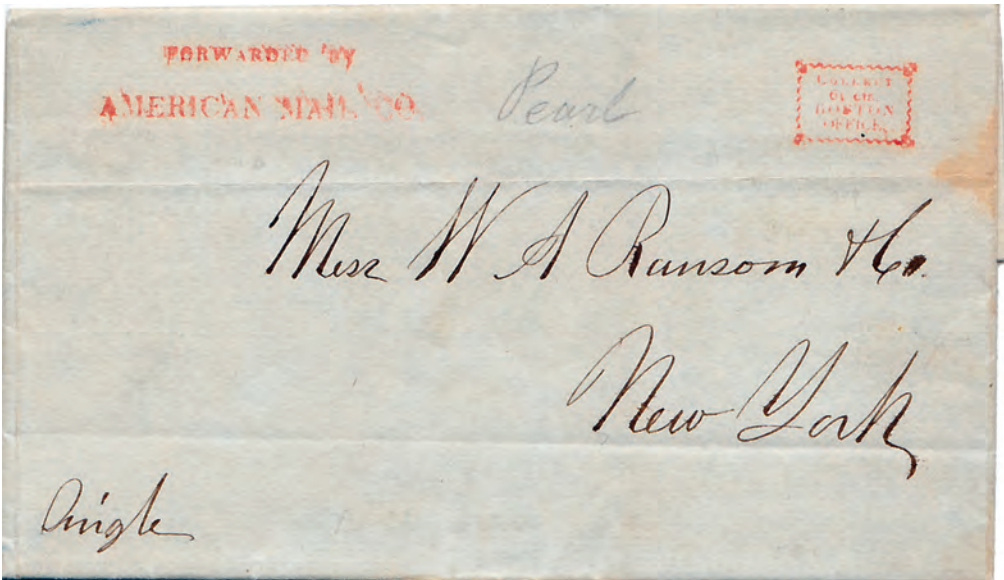 FORWARDED BY
AMERICAN MAIL CO.
Pearl
COLLECT
6¼ cts.
BOSTON
OFFICE
Mess W A Ransom & Co.
New York
Single